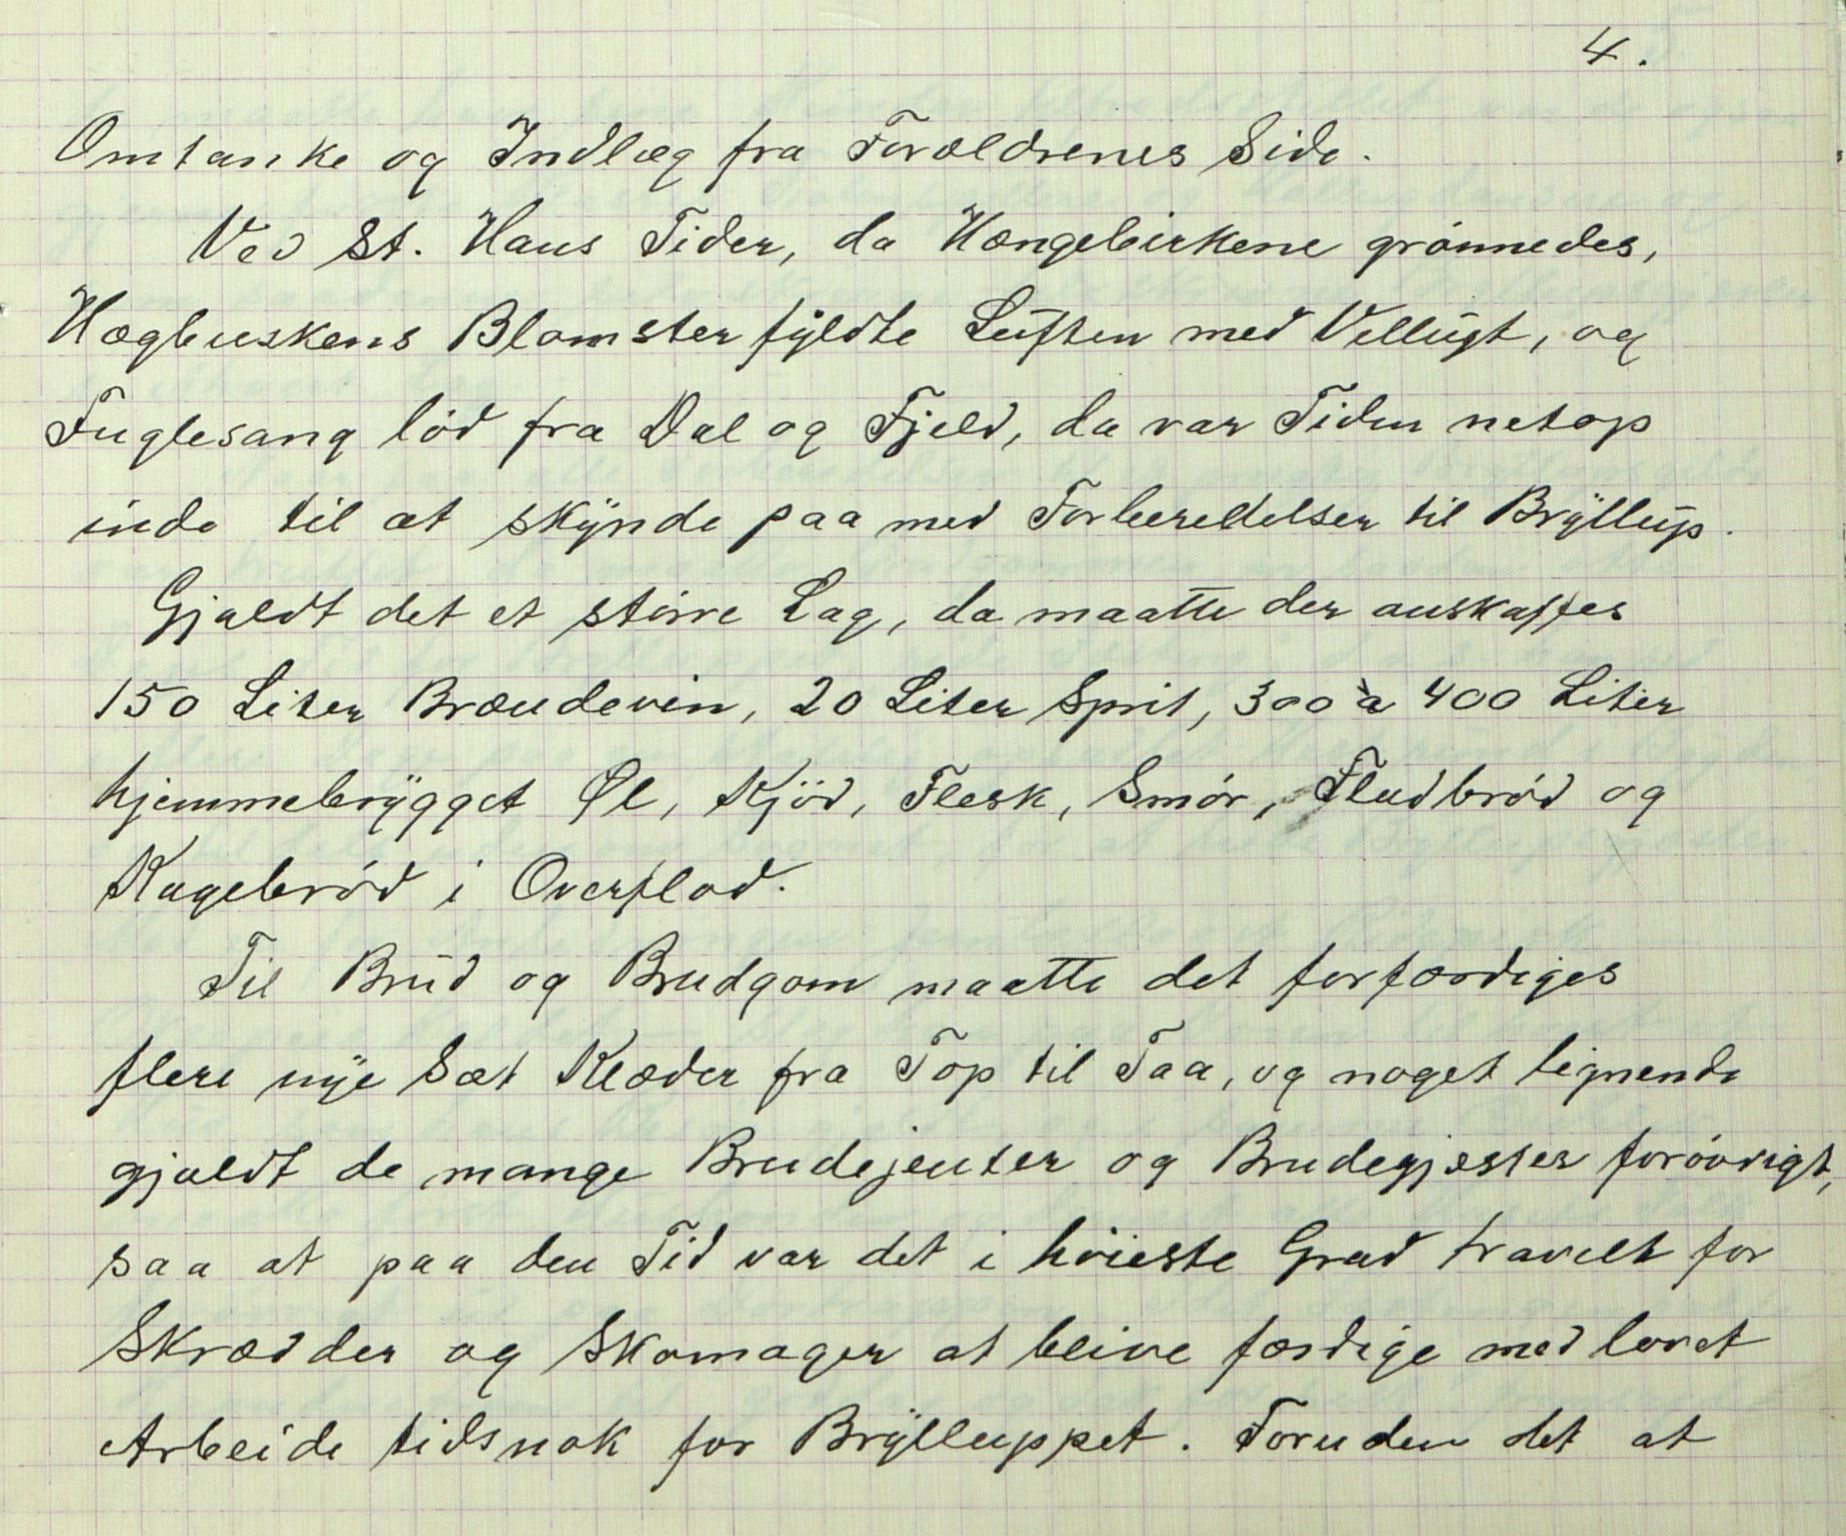 4.
Omtanke og Indlæg fra Forældrenes Side.
Ved St. Hans Tider, da Hængebirkene grønnedes,
Hægbuskens Blomster fyldte Luften med Vellugt, og
Fuglesang lød fra Dal og Fjeld, da var Tiden netop
inde til at skynde paa med Forberedelser til Bryllup.
Gjaldt det et større Lag, da maatte der anskaffes
150 Liter Brændevin, 20 Liter Sprit, 300 à 400 Liter
hjemmebrygget Øl, Kjöd, Flesk, Smór, Fladbrød og
Kagebrød i Overflod.
Til Brud og Brudgom maatte det forfærdiges
flere nye Sæt Klæder fra Top til Taa, og noget lignende
gjaldt de mange Brudejenter og Brudegjester forövrigt,
saa at paa den Tid var det i höieste Grad travelt for
Skrædder og Skomager at blive færdige med lovet
Arbeide tidsnok for Brylluppet. Foruden det at